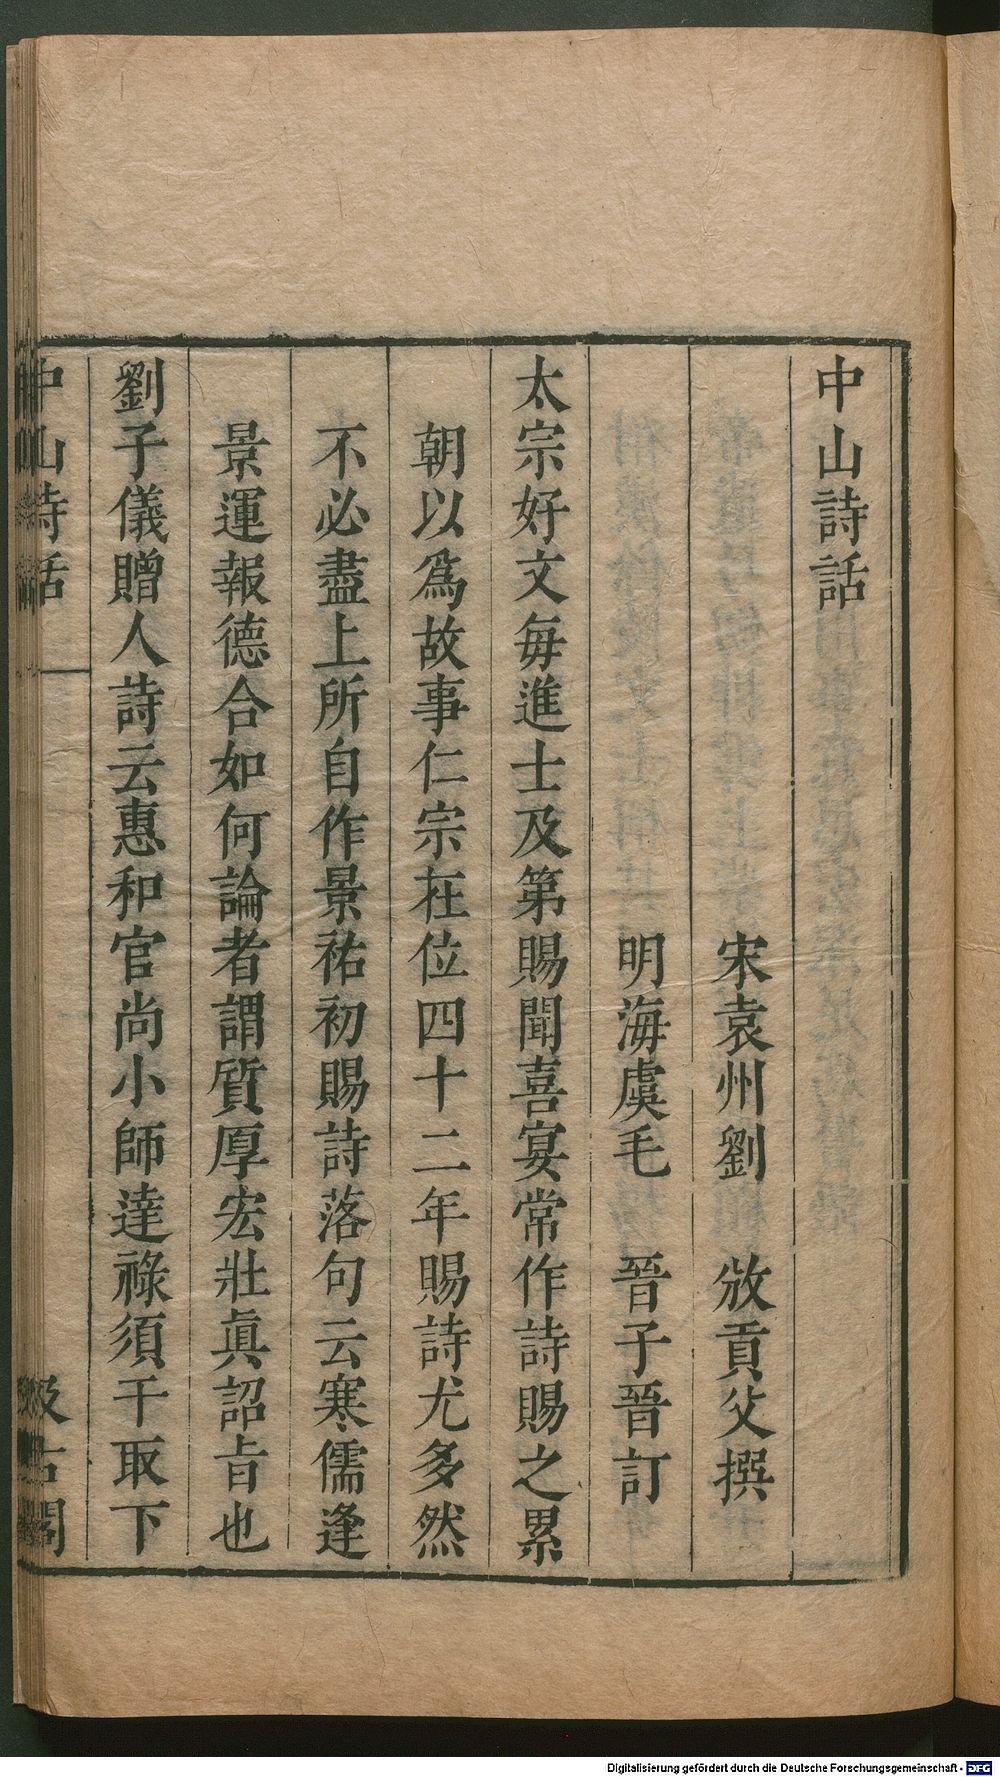 中山詩話
宋袁州劉　攽貢父撰
明海虞毛　晉子晉訂
太宗好文每進士及第賜聞喜宴常作詩賜之累
朝以爲故事仁宗在位四十二年賜詩尤多然
不必盡上所自作景祐初賜詩落句云寒儒逢
景運報德合如何論者謂質厚宏壯眞詔旨也
劉子儀贈人詩云惠和官尚小師達祿須干取下
中山詩話　一　汲古閣
Digitalisierung gefördert durch die Deutsche Forschungsgemeinschaft - DFG